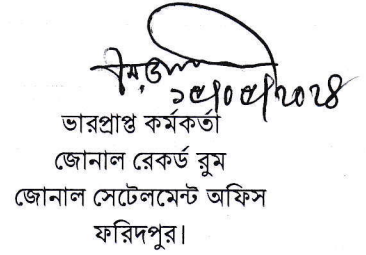 ভারপ্রাপ্ত কর্মকর্তা
জোনাল রেকর্ড রুম
জোনাল সেটেলমেন্ট অফিস
ফরিদপুর।